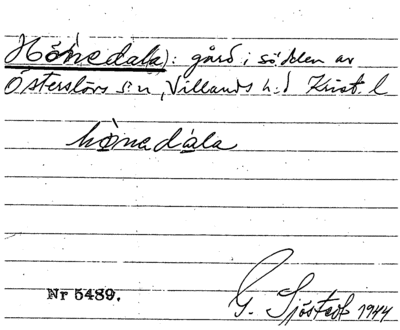 Hönedala): gård i södden av
Österslövs s:n, Villands h:d Krist. l
hȯ̀nadála
Nr 5489.
G. Sjöstedt 1944